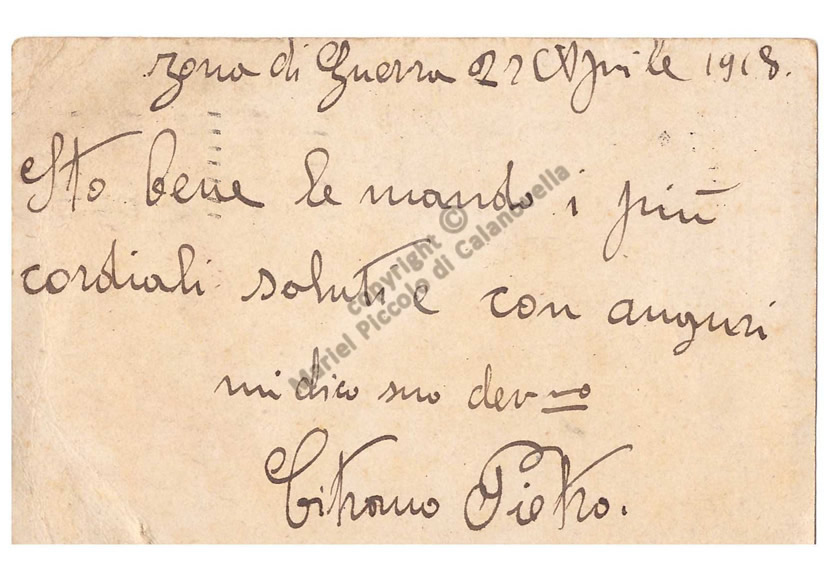 zona di Guerra 27 Aprile 1918.
Sto bene le mando i più
cordiali saluti e con auguri
mi dico suo dev-mo
Citrano Pietro.
copyright ©
Mariel Piccolo di Calanovella